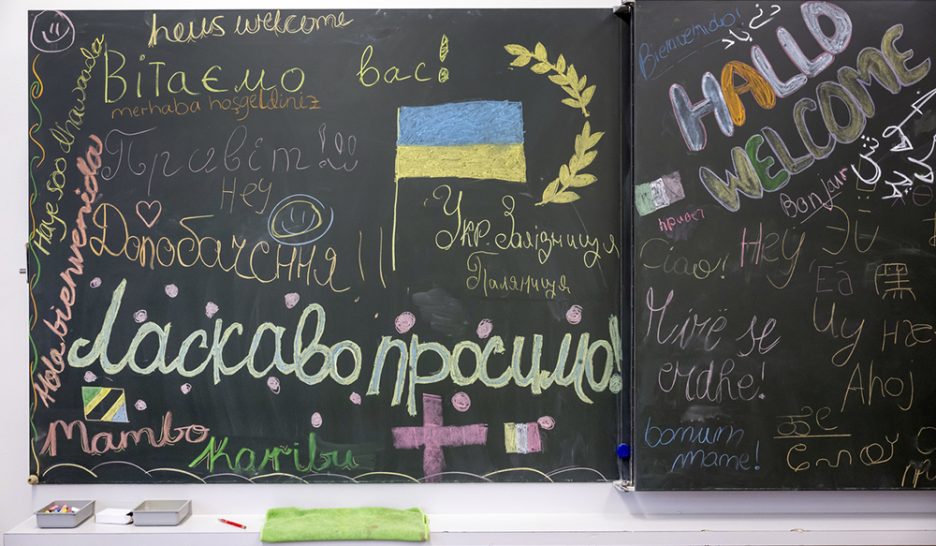 heus welcome
Вітаємо вас!
merhaba hoşgeldiniz
Haye soo dhawaada
Hola bienvenida
Привіт!!!
Hey
Допобачєння !!
Укр. Залізниця
Паляниця
Ласкаво просимо!
Mambo
Karibu
Bienvenido!
HALLO
WELCOME
Bonjur
привет
Ciao!
Hey
Mirë se
erdhe!
Ahoj
bonum
mane!